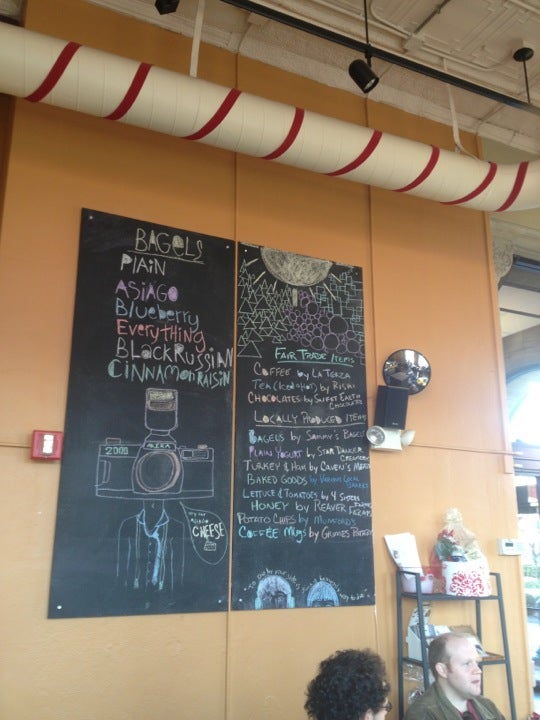 BAGELS
PlAiN
ASiAGO
Blueberry
Everything
BLACKRUSSiAN
CiNNAMONRAiSiN
2000
CHEESE
FAIR TRADE ITEMS
COFFEE by LA TERZA
TEA (ICED & HOT) by RISHI
CHOCOLATES by SWEET EARTH
CHOCOLATES
LOCALLY PRODUCED ITEMS
BAGELS by SAMMY'S BAGELS
PLAIN YOGURT by STAR
CREAMERY
TURKEY & HAM by
BAKED GOODS by VARIOUS LOCAL
BAKERS
LETTUCE & TOMATOES by 4 SISTERS
HONEY by REAVER
POTATO CHIPS by MUMFORD'S
COFFEE MUGS by GRIMES POTTERY